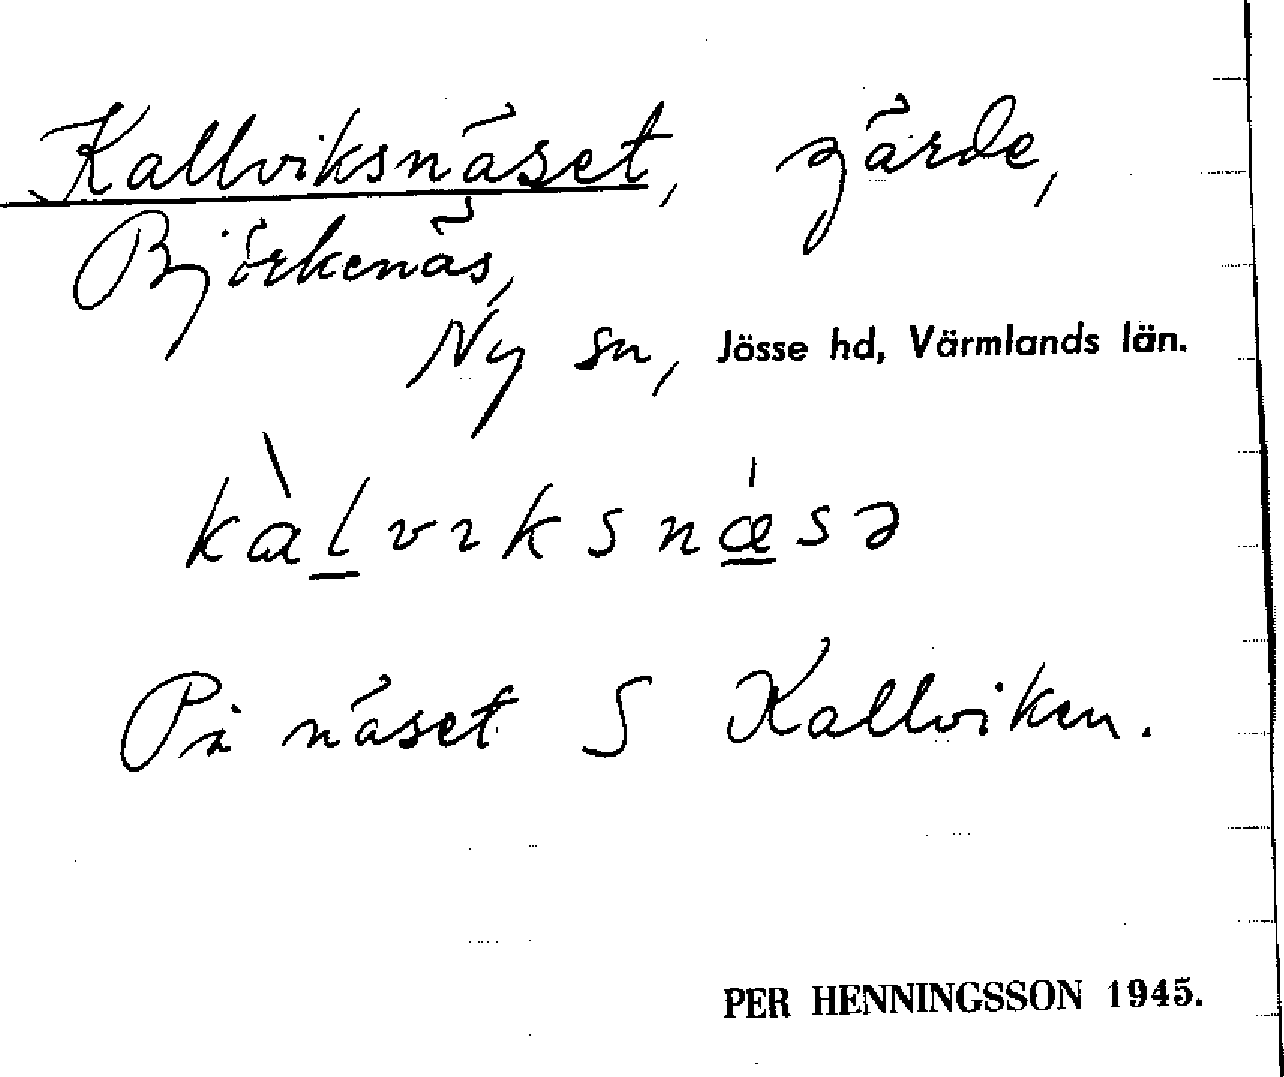 Kallviksnäset, gärde,
Björkenäs,
Ny sn, Jösse hd, Värmlands län.
kàlvıksnǽsə
På näset S Kallviken.
PER HENNINGSSON 1945.